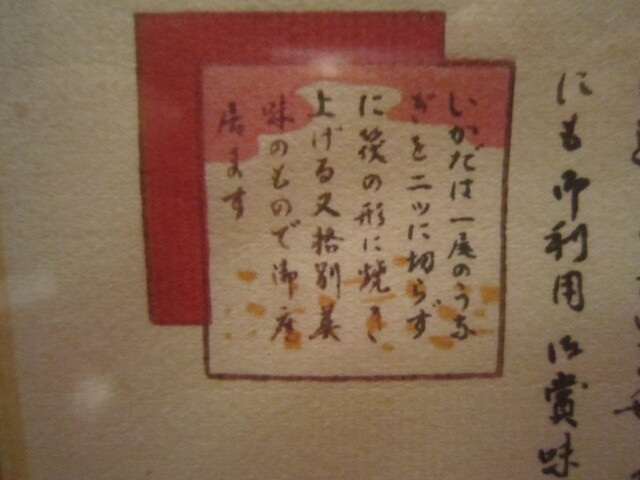 にも御利用御賞味
いかだは一尾のうな
ぎを二ツに切らず
に筏の形に焼き
上げる又格別美
味のもので御座
居ます